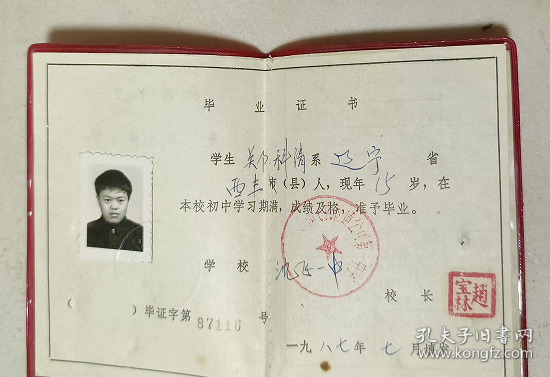 毕业证书
学生 郑科清 系 辽宁 省
西丰 市(县)人，现年 15 岁，在
本校初中学习期满，成绩及格，准予毕业。
学校 沈飞一中
校长 赵宝林
( )毕证字第 87116 号
一九八七年 七 月填发
孔夫子旧书网
www.kongfz.com